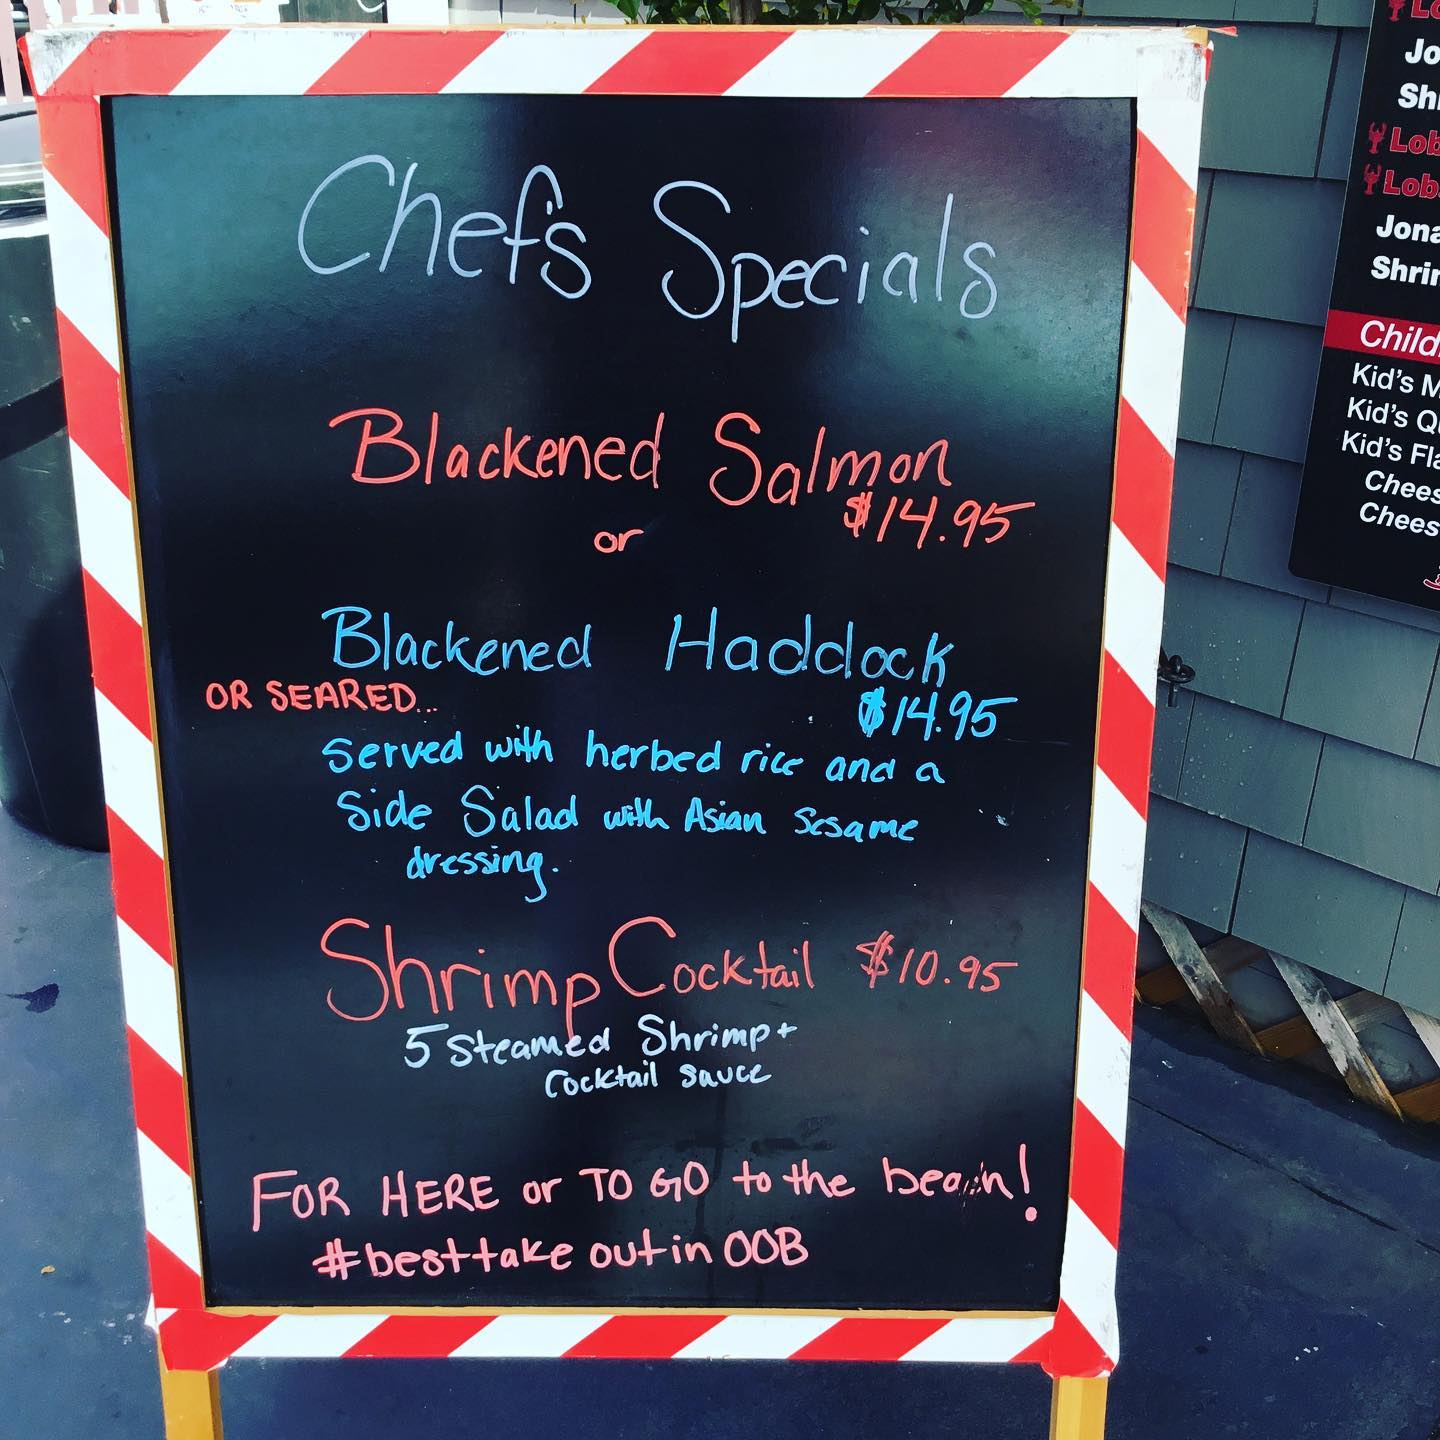 Chef's Specials
Blackened Salmon
$14.95
or
Blackened Haddock
OR SEARED...
$14.95
served with herbed rice and a
Side Salad with Asian Sesame
dressing.
Shrimp Cocktail $10.95
5 Steamed Shrimp +
Cocktail sauce
FOR HERE or TO GO to the
#besttake out in OOB
Lo
Jo
Shr
Lob
Lobs
Jona
Shrim
Child
Kid's M
Kid's Qu
Kid's Fla
Chees
Chees